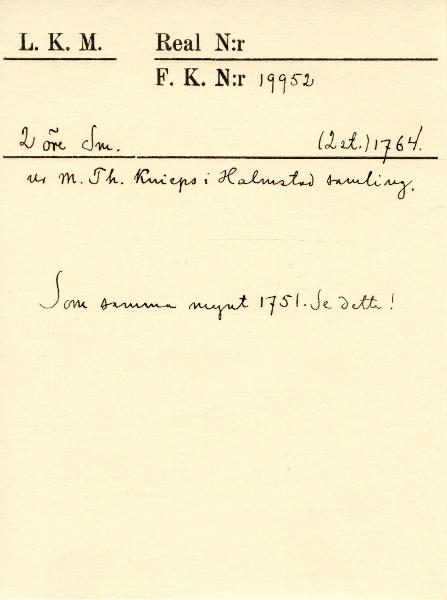 L. K. M. Real N:r
F. K. N:r 19952
2 öre Sm. (2 st.) 1764.
ur M. Th. Knieps i Halmstad samling.
Som samma mynt 1751. Se detta!